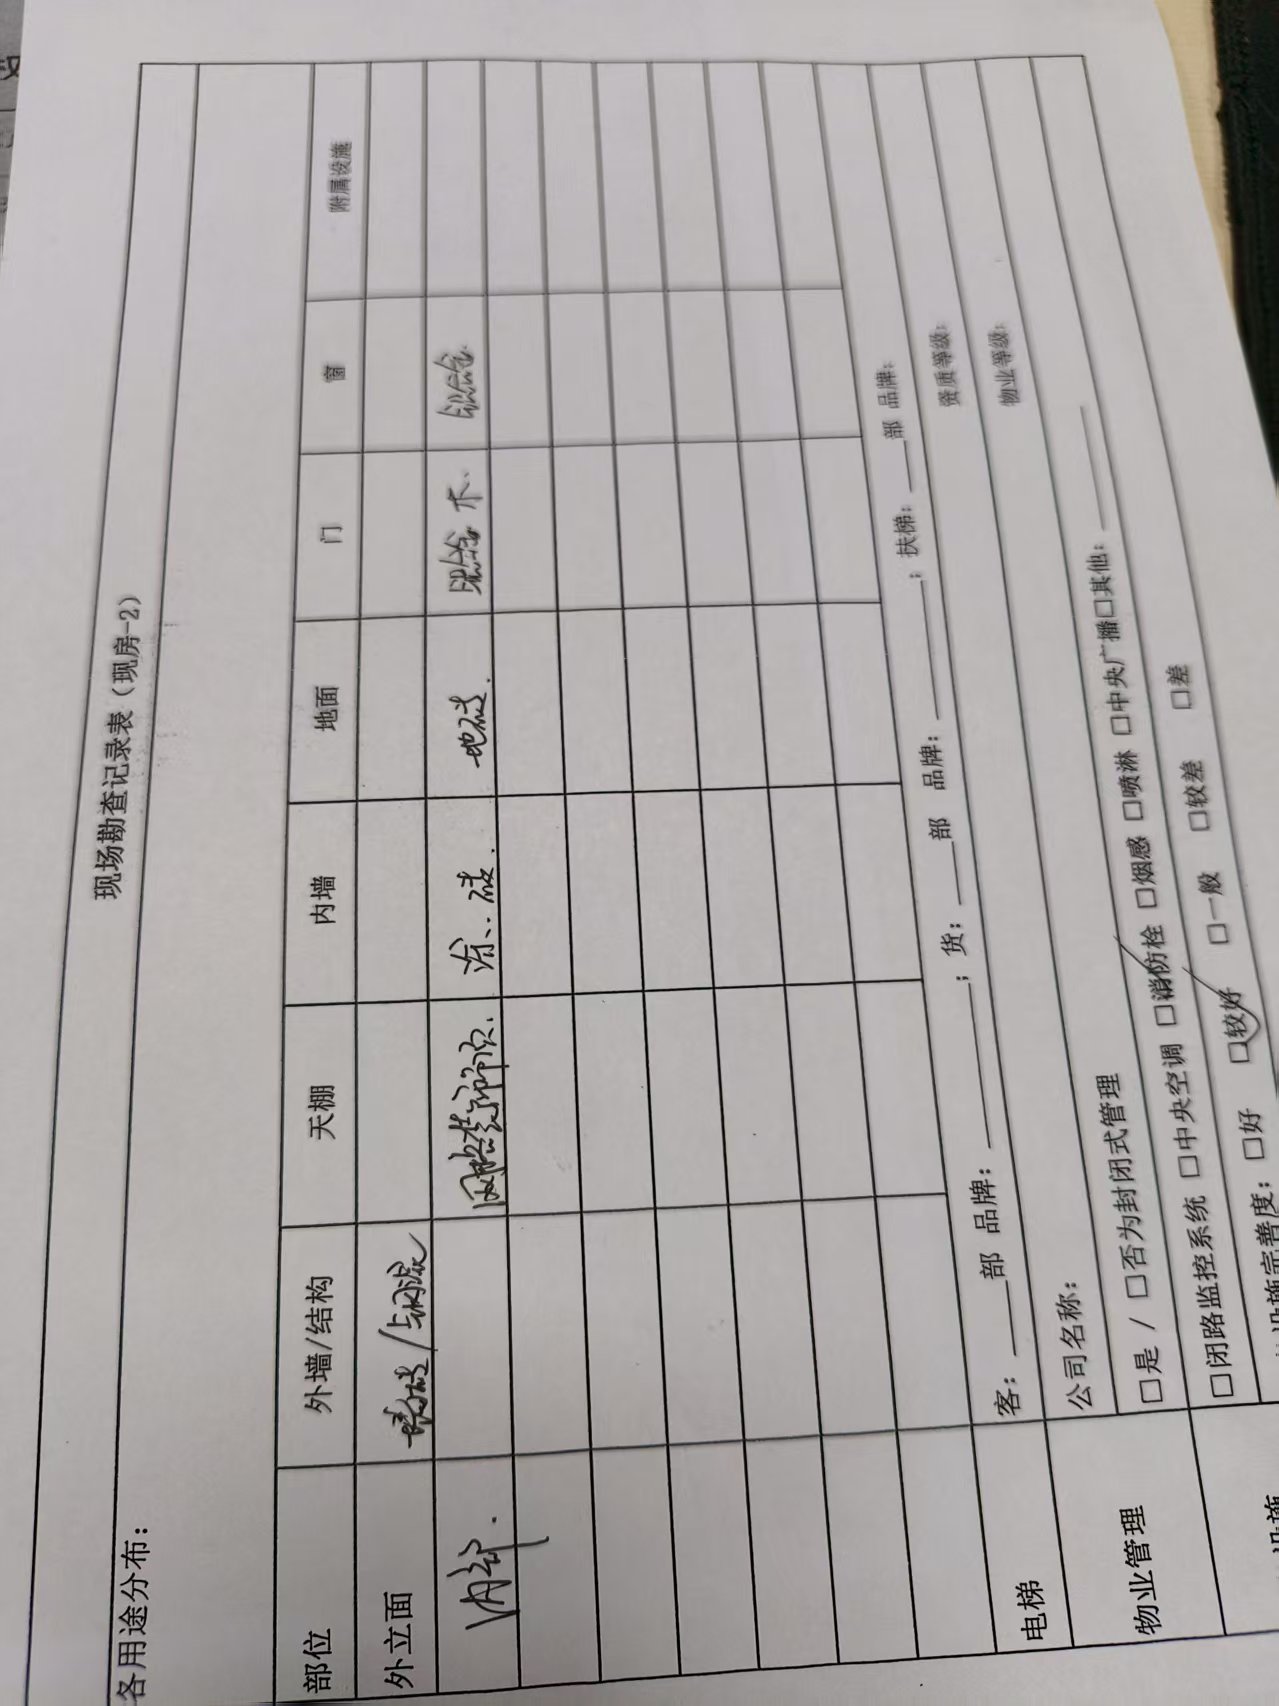 现场勘查记录表（现房-2）
各用途分布：
部位 外墙/结构 天棚 内墙 地面 门 窗 附属设施
外立面 墙砖/钢混
内部. 涂.. 砖. 地砖. 铝合金 木. 铝合金.
电梯 客：____部 品牌：________；货：____部 品牌：________；扶梯：____部 品牌：
物业管理 公司名称： 资质等级：
□是 / □否为封闭式管理 物业等级：
□闭路监控系统 □中央空调 □消防栓 □烟感 □喷淋 □中央广播□其他：________
设施完善度：□好 □较好 □一般 □较差 □差